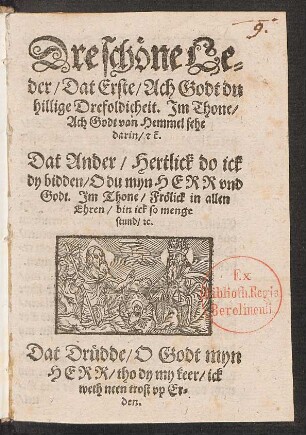 9.
Dre schöne Le-
der/ Dat Erste/ Ach Godt du
hillige Drefoldicheit. Im Thone/
Ach Godt van Hemmel sehe
darin/ ꝛc.
Dat Ander/ Hertlick do ick
dy bidden/ O du myn HERR vnd
Godt. Im Thone/ Frölick in allen
Ehren/ bin ick so menge
stund/ ꝛc.
Ex
Biblioth. Regia
Berolinensi.
Dat Drüdde/ O Godt myn
HERR/ tho dy my keer/ ick
weth neen trost vp Er-
den.